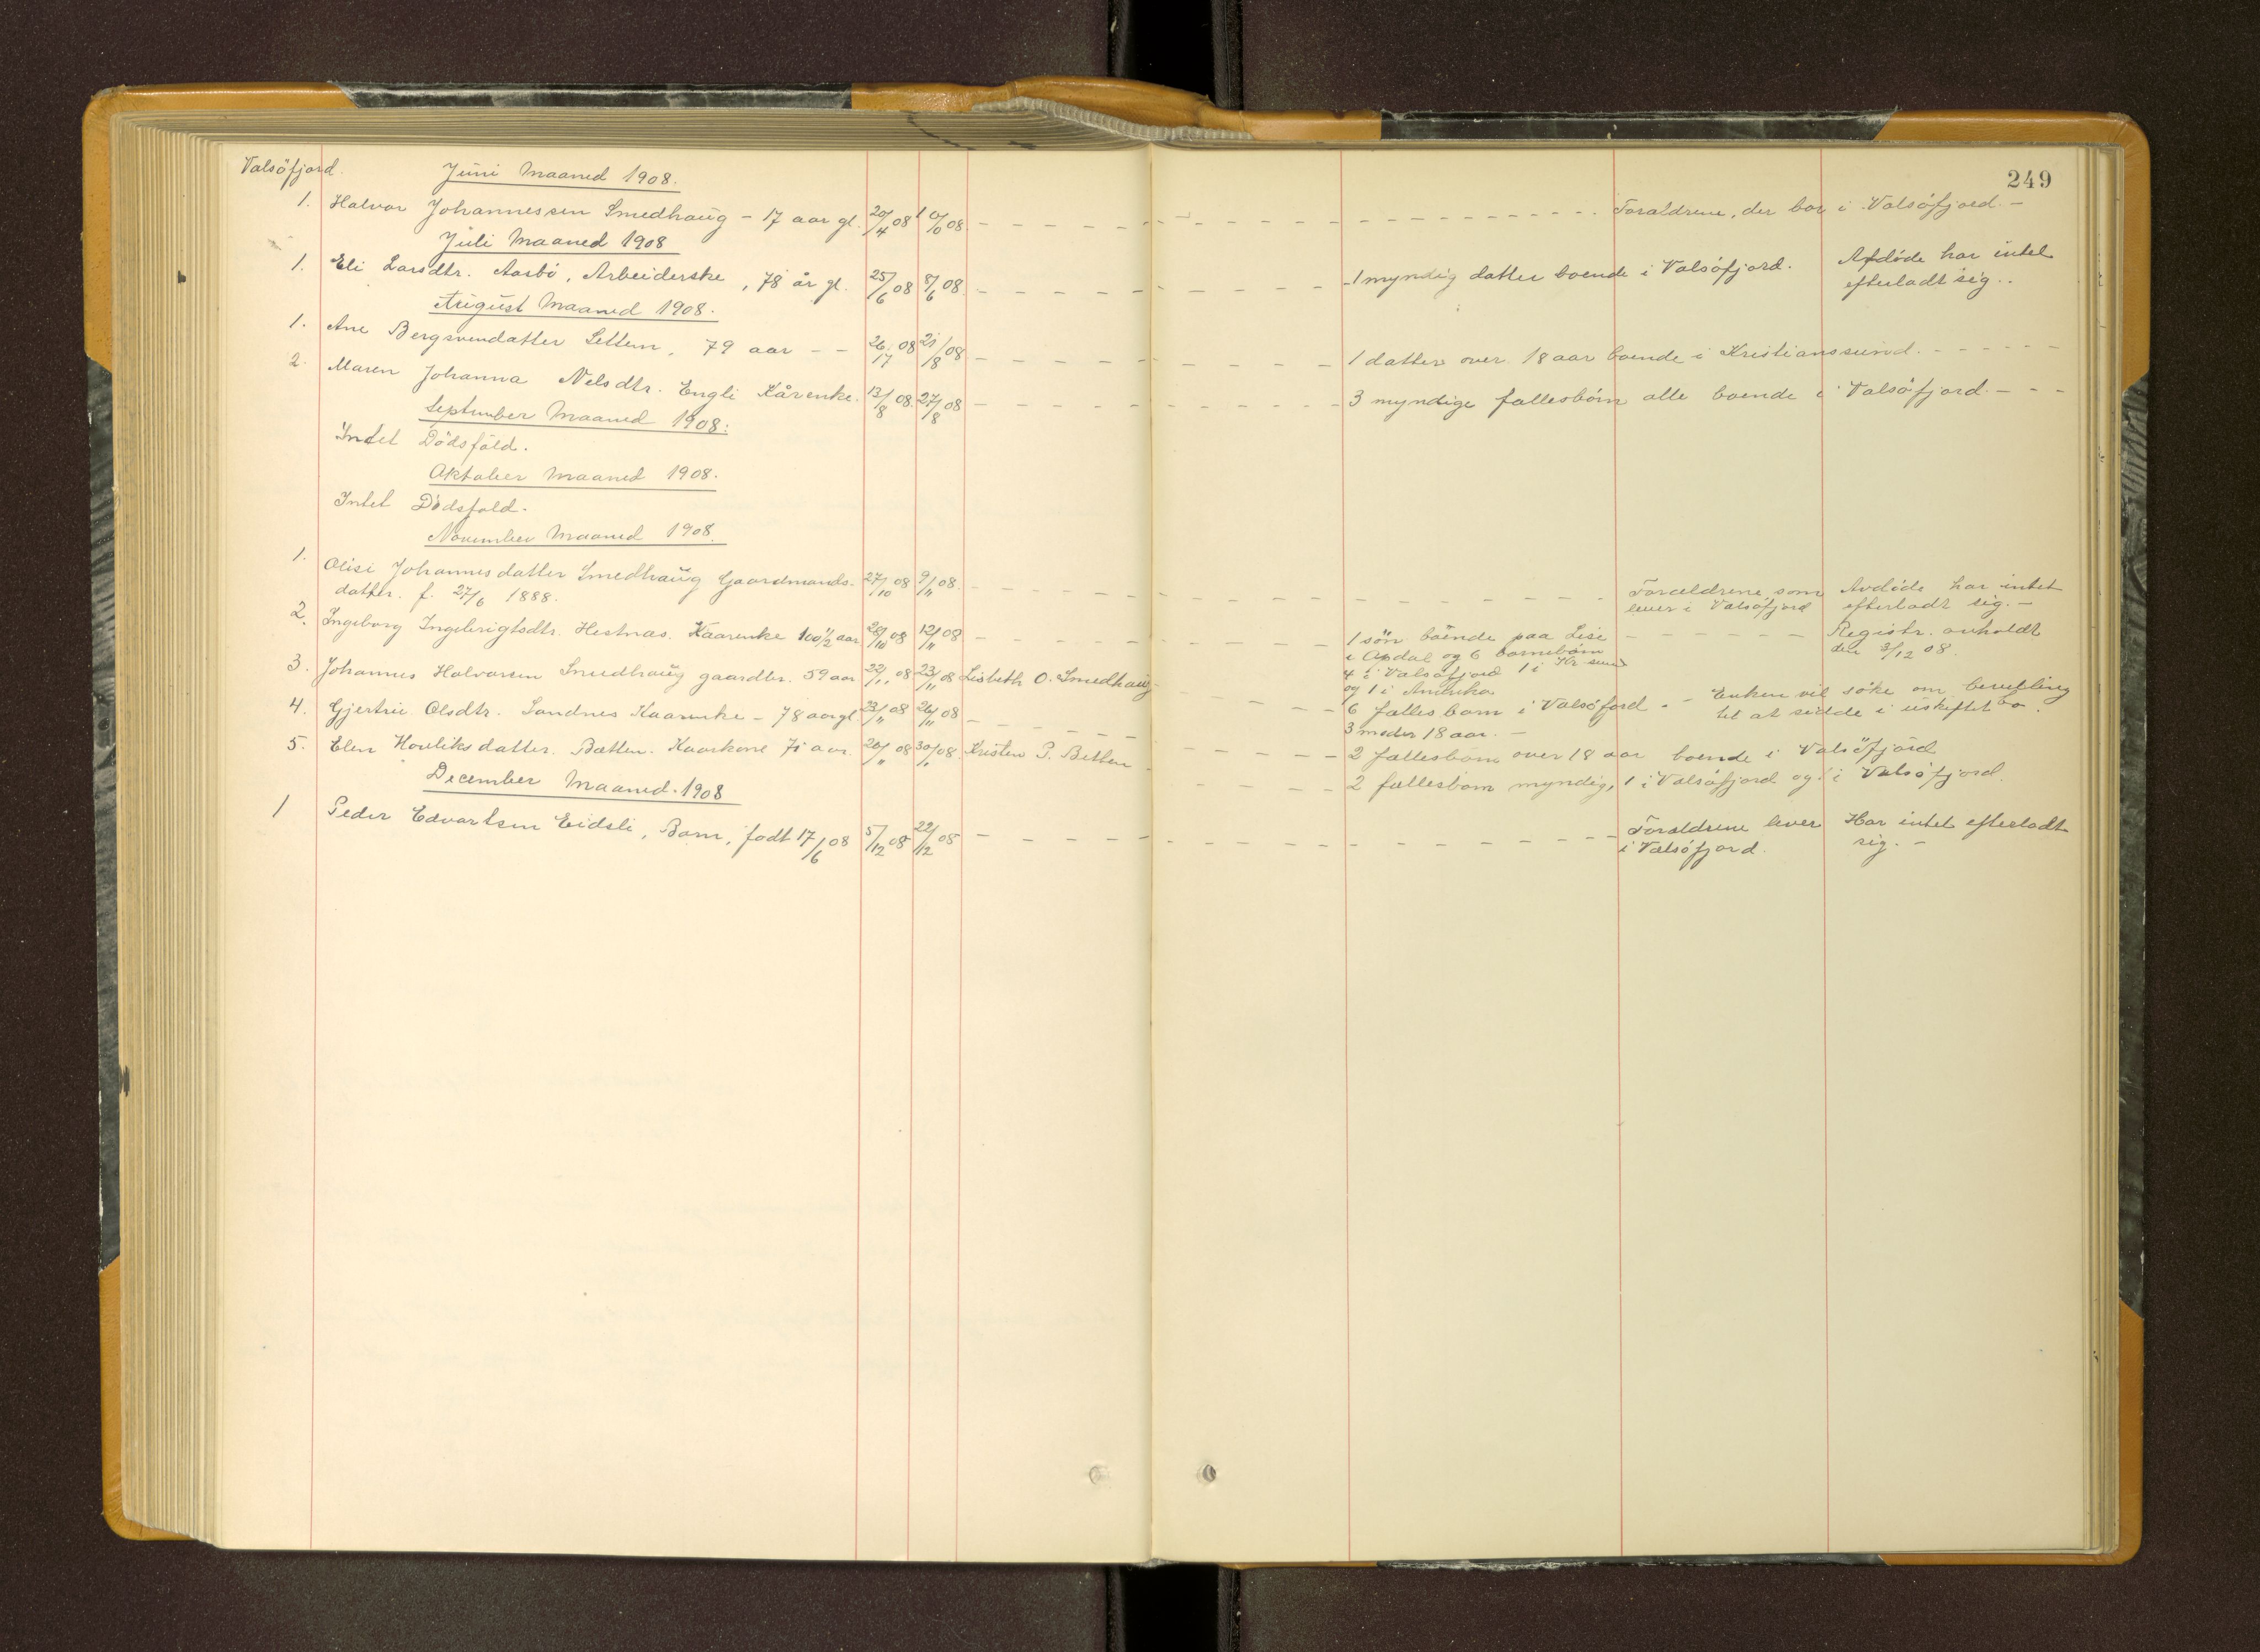 249
Valsöfjord. Juni Maaned 1908.
1. Halvor Johannessen Smedhaug - 17 aar gl. 20/4 08 - Foraldrene, der bor i Valsöfjord. -
Juli Maaned 1908
1. Eli Larsdtr. Aasbö, Arbeiderske, 78 år gl. 25/6 08 8/6 08 - 1 myndig datter boende i Valsöfjord. Afdöde har intet
efterladt sig..
August Maaned 1908.
1. Ane Bergsvendatter Settem, 79 aar - - 26/17 08 21/8 08 - 1 datter over 18 aar boende i Kristianssund.
2. Maren Johanna Nelsdtr. Engli Kårenke. 13/8 08. 27/8 08 - 3 myndige fallesbörn alle boende i Valsöfjord. -
September Maaned 1908:
Intet Dödsfald.
Oktober Maaned 1908.
Intet Dödsfald.
November Maaned 1908.
1. Olise Johannesdatter Smedhaug Gaardmands- 27/10 08 9/11 08. - Foraldrene som Avdöde har intet
datter. f. 27/6 1888. lever i Valsöfjord efterladt sig. -
2. Ingeborg Ingebrigtsdtr. Hestnas. Kaarenke 100 1/2 aar 28/10 08 12/11 08 - 1 sön boende paa Lise - Registr. avholdt
i Opdal og 6 barnebörn den 3/12 08.
4 i Valsöfjord 1 i Kr sund
og 1 i Amerika
3. Johannes Halvorsen Smedhaug gaardbr. 59 aar 22/11 08 23/11 08 Lisbeth O. Smedhaug - 6 falles barn i Valsöfjord - Enken vil söke om bevilling
3 under 18 aar. - til at sidde i uskiftet bo.
4. Gjertrue Olsdtr. Sandnes Kaarenke - 78 aar gl. 23/11 08 26/11 08 - 2 fallesbarn over 18 aar boende i Valsöfjord
5. Elen Datter. Batten. Kaarkone 71 aar. 20/11 08 30/11 08. Kristen P. Betten - 2 fallesbarn myndig, 1 i Valsöfjord og 1 i Valsöfjord.
December Maaned. 1908
1 Peder Edvartsen Eidsli, Barn, födt 17/6 08 5/12 08 22/12 08 - Foraldrene lever Har intet efterladt
i Valsöfjord. sig. -